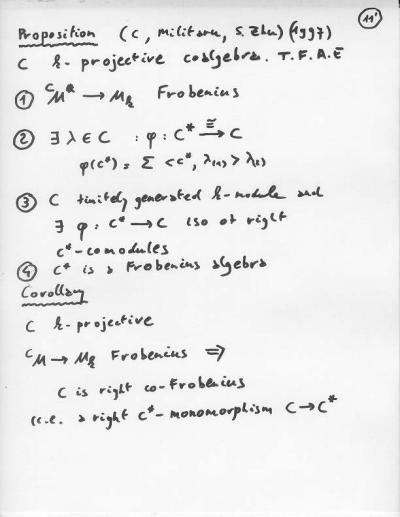 11'
Proposition (C, Militaru, S. Zhu) (1997)
C k-projective coalgebra. T.F.A.E
① → M_k Frobenius
② ∃ λ ∈ C : φ : C* ≅→ C
φ(c*) = Σ <c*, λ(1)> λ(2)
③ C finitely generated k-module and
∃ φ : C* → C iso of right
C*-comodules
④ C* is a Frobenius algebra
Corollary
C k-projective
ᶜM → M_k Frobenius ⇒
C is right co-Frobenius
(i.e. a right C*-monomorphism C → C*